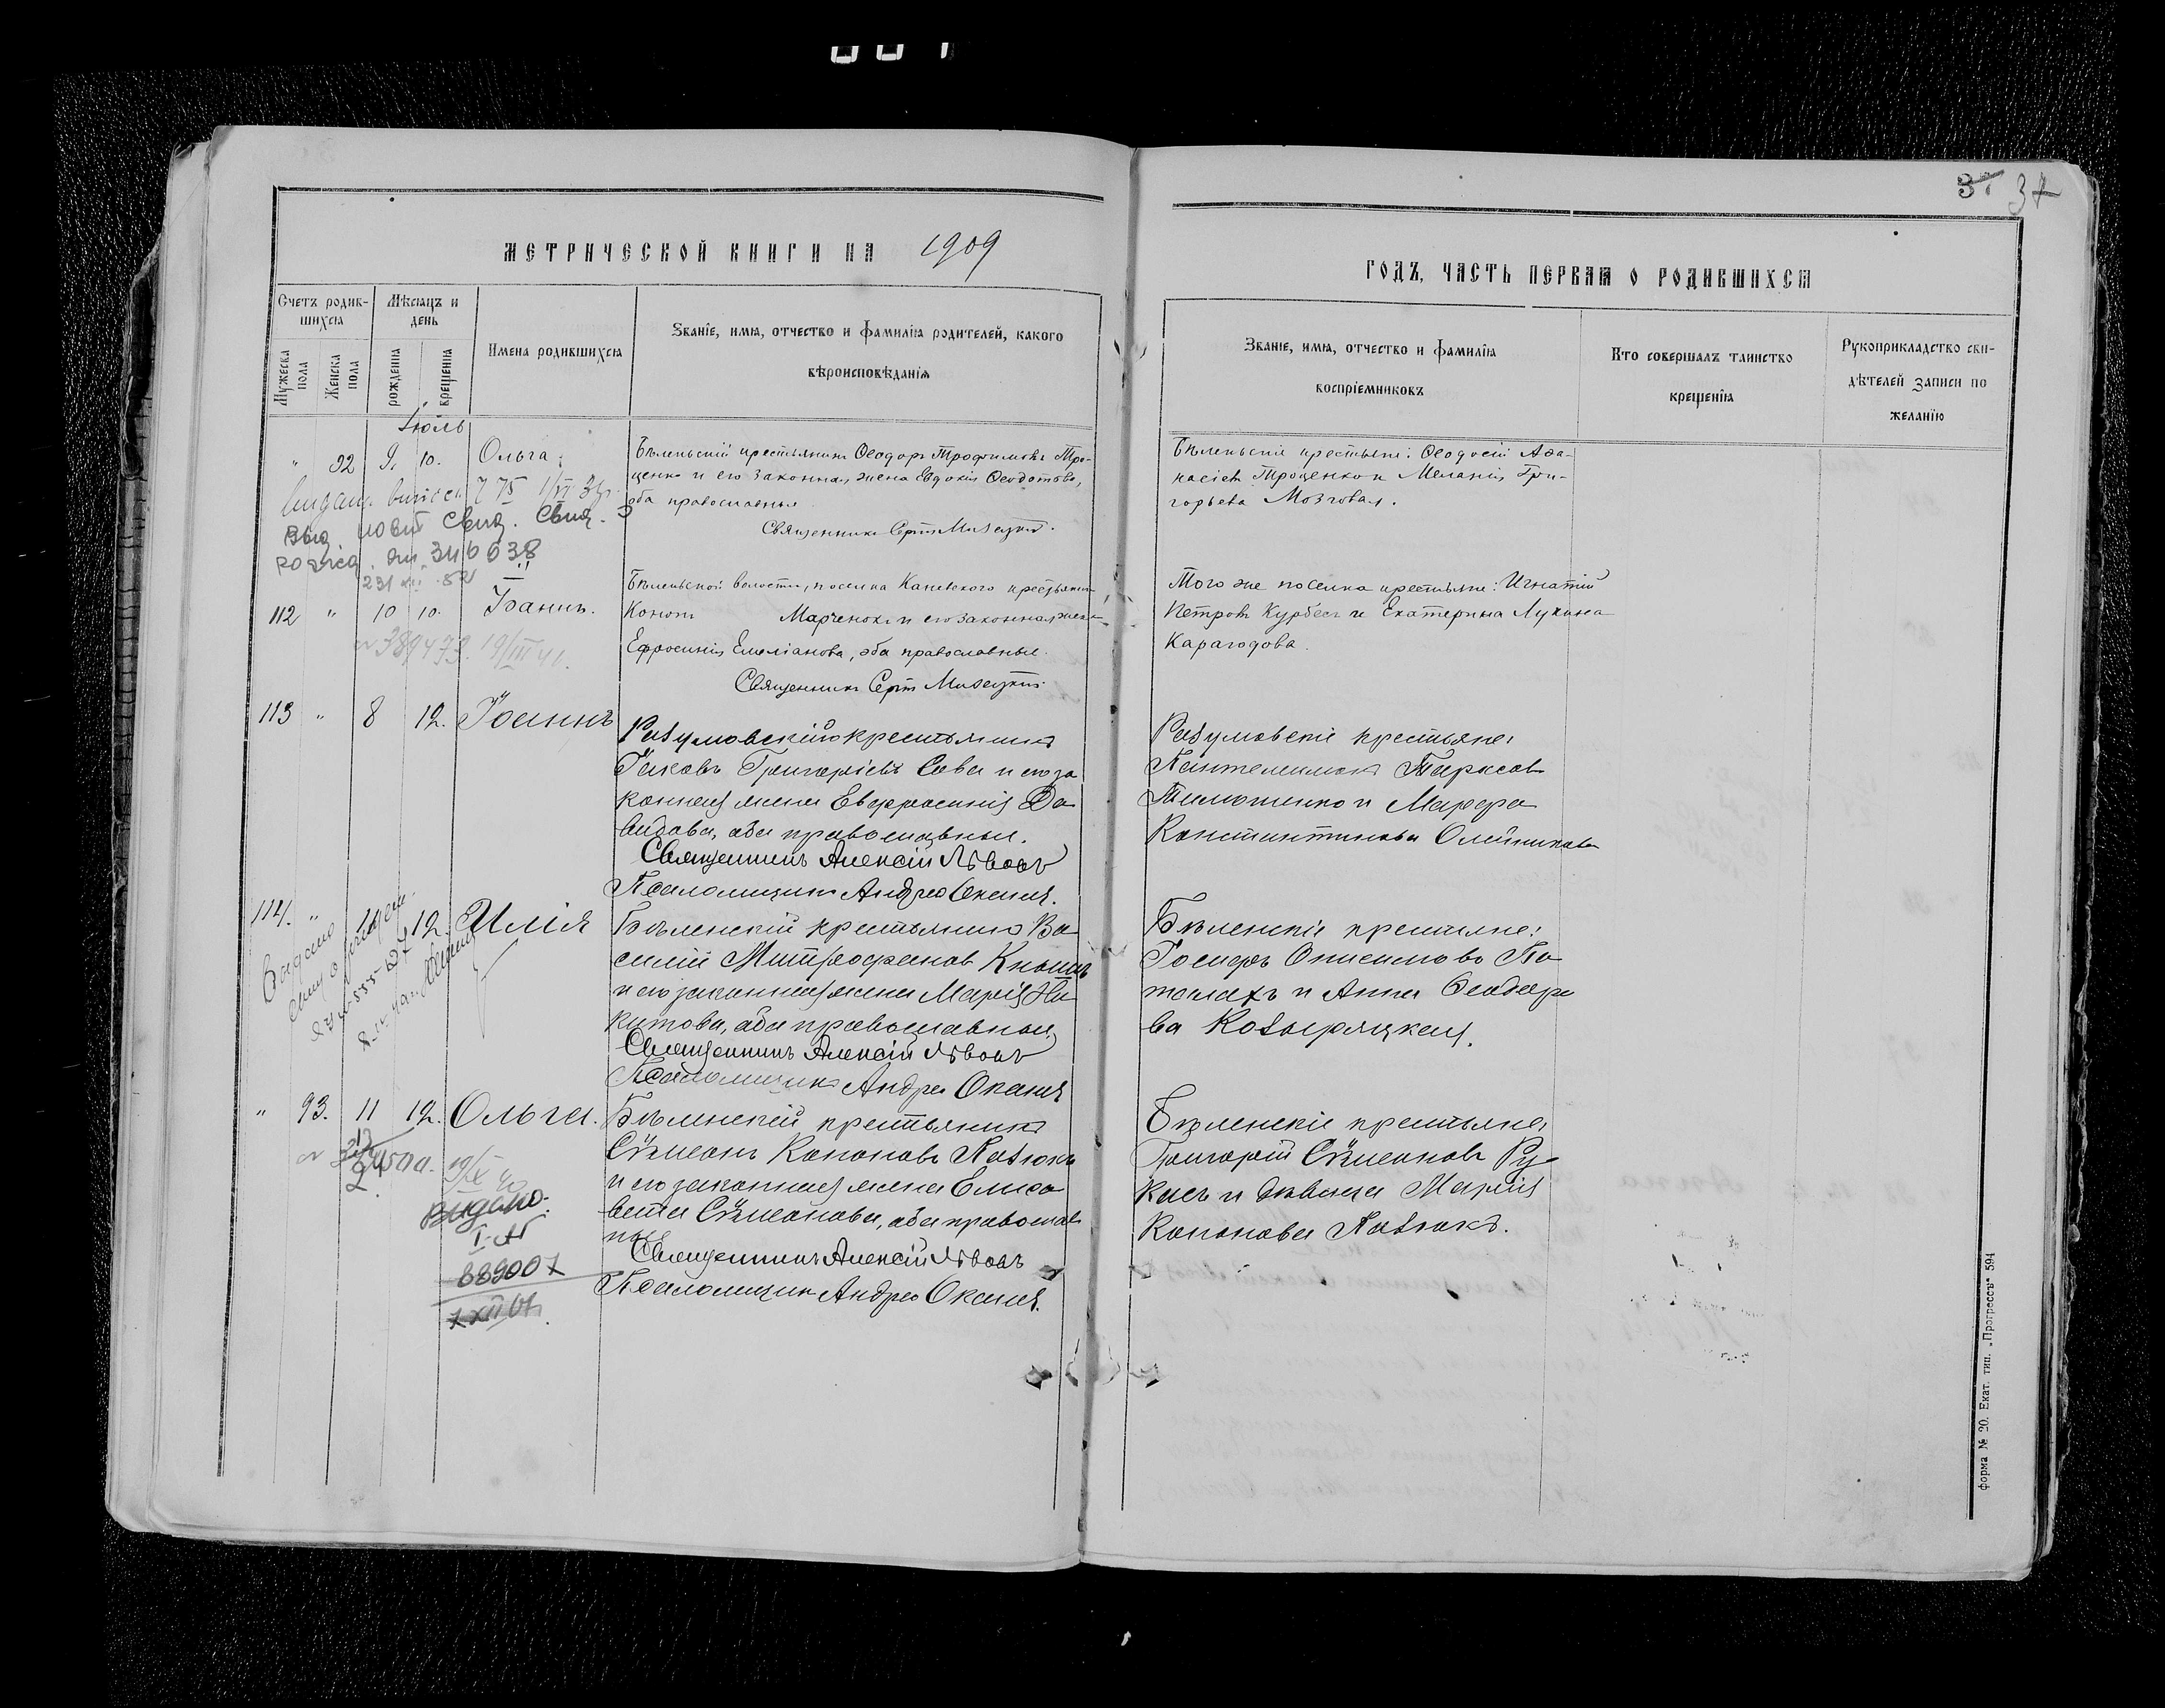 37 37
МЕТРИЧЕСКОЙ КНИГИ НА 1909
ГОДЪ, ЧАСТЬ ПЕРВАЯ О РОДИВШИХСЯ
Счетъ родив-
шихся
Мѣсяцъ и
день
Мужеска
пола
Женска
пола
рожденія
крещенія
Имена родившихся
Званіе, имя, отчество и фамилія родителей, какого
вѣроисповѣданія
Званіе, имя, отчество и фамилія
воспріемниковъ
Кто совершалъ таинство
крещенія
Рукоприкладство сви-
дѣтелей записи по
желанію
Іюль
" 92 9. 10. Ольга.
Бѣленьскій крестьянинъ Ѳеодоръ Трофимовъ Тро-
ценко и его законная жена Евдокія Ѳеодотова,
оба православные
Священникъ Сергій
Бѣленьскіе крестьяне: Ѳеодосій Аѳа-
насіевъ Троценко и Меланія Гри-
горьева Мозговая.
775 1/VI
Выд. повт свид.
346638
112 " 10 10. Іоаннъ.
389473. 19/III 41.
Бѣленьской волости, поселка Каневского крестьянинъ
Кононъ Марченокъ и его законная жена
Ефросинія Емеліанова, оба православные.
Священникъ Сергій
Того же поселка крестьяне: Игнатій
Петровъ Курбесъ и Екатерина Лукина
Карагодова.
113 " 8 12. Іоаннъ
Разумовскій крестьянинъ
Іаковъ Григоріевъ Сова и его за
конная жена Евфросинія Да
видова, оба православные.
Священникъ Алексій Львовъ
Псаломщикъ Андрей Оканя.
Разумовскіе крестьяне:
Пантелеимонъ Тарасовъ
Тимошенко и Марфа
Константинова Олейникова
114. " 11 12. Илія
Видано
Бѣленскій крестьянинъ Ва
силій Митрофановъ Кнышъ
и его законная жена Марія Ни
китова, оба православные,
Священникъ Алексій Львовъ
Псаломщикъ Андрей Оканя
Бѣленскіе крестьяне:
Іосифъ Онисимовъ По
толахъ и Анна Ѳеодоро
ва Козыряцкая.
" 93. 11 12. Ольга.
Видано.
889007
7 XII 61.
Бѣленскій крестьянинъ
Сѵмеонъ Кононовъ Пазюкъ
и его законная жена Елиса
вета Сѵмеонова, оба православ
ные
Священникъ Алексій Львовъ
Псаломщикъ Андрей Оканя.
Бѣленскіе крестьяне,
Григорій Сѵмеоновъ Ру
касъ и дѣвица Марія
Кононова Пазюкъ.
форма № 20. Екат. тип. „Прогрессъ" 594